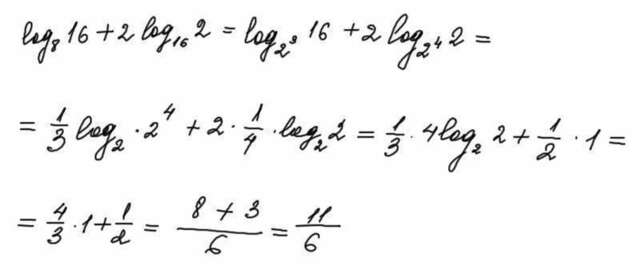 log₈ 16 + 2 log₁₆ 2 = log₂³ 16 + 2 log₂⁴ 2 =
= 1/3 log₂ · 2⁴ + 2 · 1/4 · log₂ 2 = 1/3 · 4 log₂ 2 + 1/2 · 1 =
= 4/3 · 1 + 1/2 = (8 + 3)/6 = 11/6